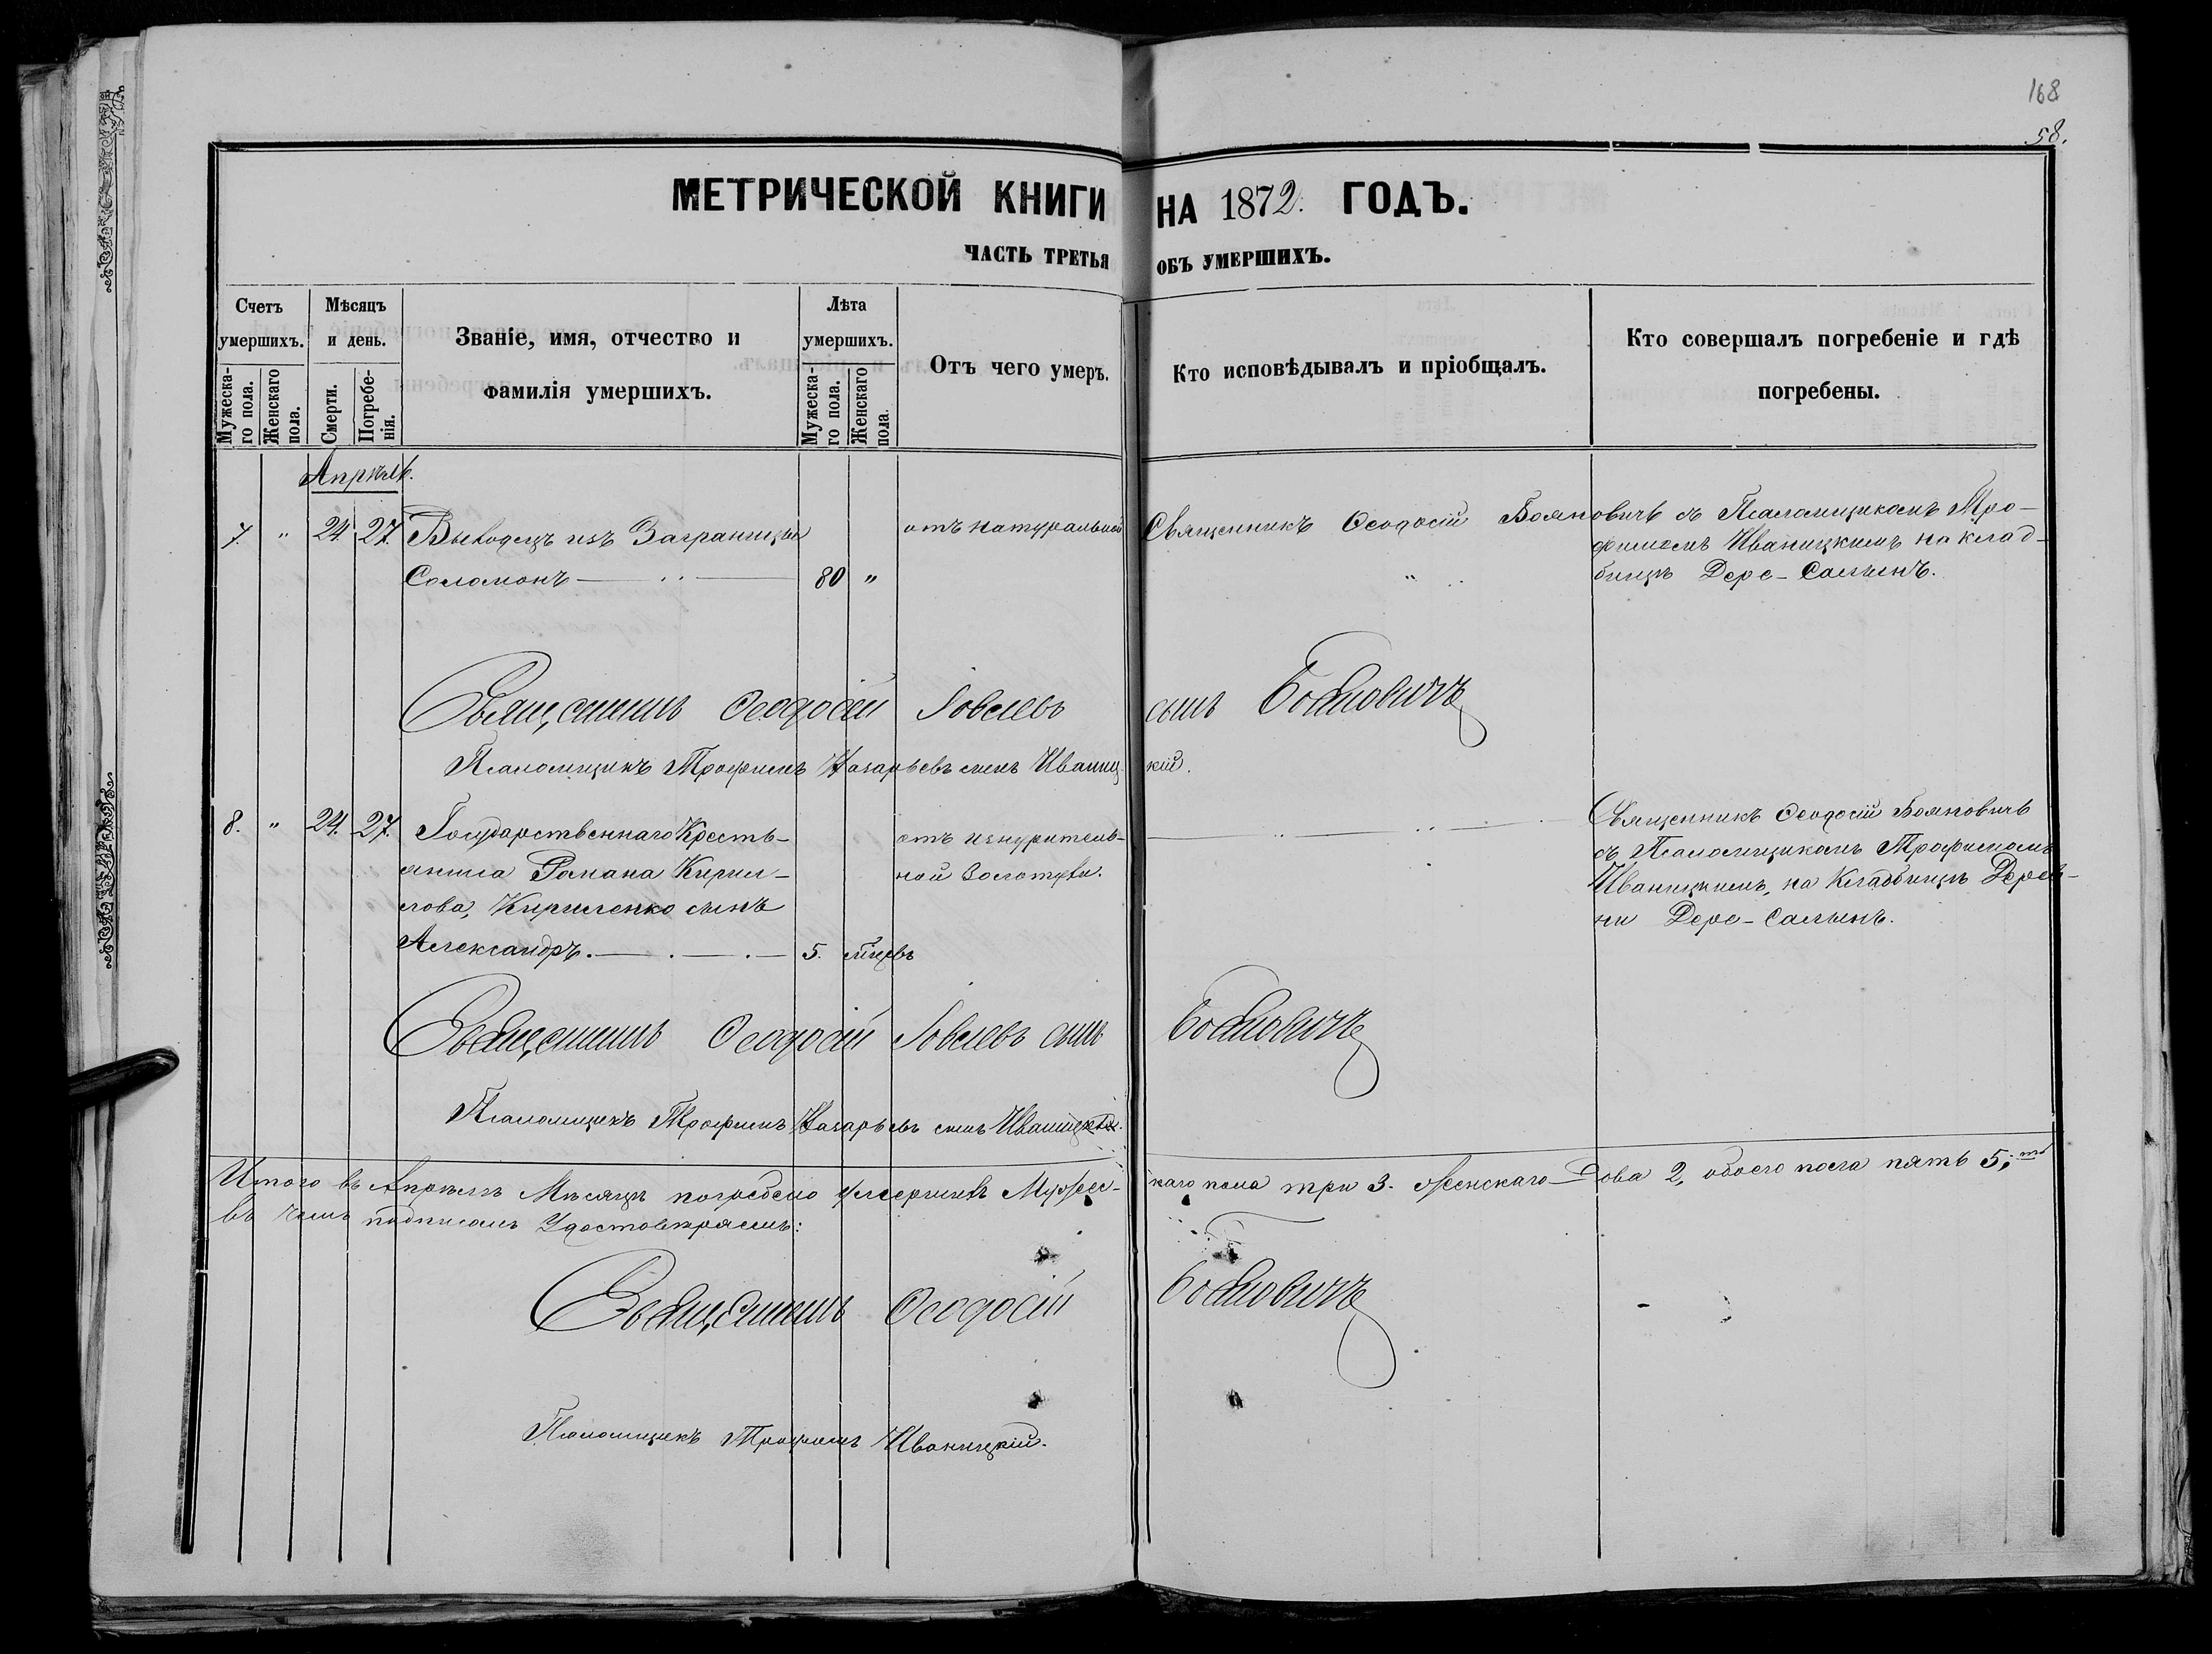 168
58.
МЕТРИЧЕСКОЙ КНИГИ НА 1872. ГОДЪ.
ЧАСТЬ ТРЕТЬЯ ОБЪ УМЕРШИХЪ.
Счетъ умершихъ.
Мужеска-го пола.
Женскаго пола.
Мѣсяцъ и день.
Смерти.
Погребе-нія.
Званіе, имя, отчество и фамилія умершихъ.
Лѣта умершихъ.
Мужеска-го пола.
Женскаго пола.
Отъ чего умеръ.
Кто исповѣдывалъ и пріобщалъ.
Кто совершалъ погребеніе и гдѣ погребены.
Апрѣль.
7. " 24. 27. Выходецъ изъ Заграницы
Соломонъ 80 "
отъ натуральной
Священникъ Ѳеодосій Бояновичъ съ Псаломщикомъ Тро-
фимомъ Иваницкимъ на клад-
бищѣ Дере-Салынъ.
Священникъ Ѳеодосій Іовлевъ сынъ Бояновичъ
Псаломщикъ Трофимъ Назарьевъ сынъ Иваниц-кій.
8. " 24. 27. Государственнаго Кресть-
янина Романа Кирил-
лова, Кириленко сынъ
Александръ. 5. мѣсцевъ
отъ изнурительной
ной Золотухи.
Священникъ Ѳеодосій Бояновичъ
съ Псаломщикомъ Трофимомъ
Иваницкимъ, на Кладбищѣ Дерев-
ни Дере-Салынъ.
Священникъ Ѳеодосій Іовлевъ сынъ Бояновичъ
Псаломщикъ Трофимъ Назарьевъ сынъ Иваницкій.
Итого въ Апрѣлѣ Мѣсяцѣ погребено умершихъ Мужес-каго пола три 3. Женскаго два 2, обоего пола пять 5;
въ чемъ подписомъ Удостовѣряемъ:
Священникъ Ѳеодосій Бояновичъ
Псаломщикъ Трофимъ Иваницкій.